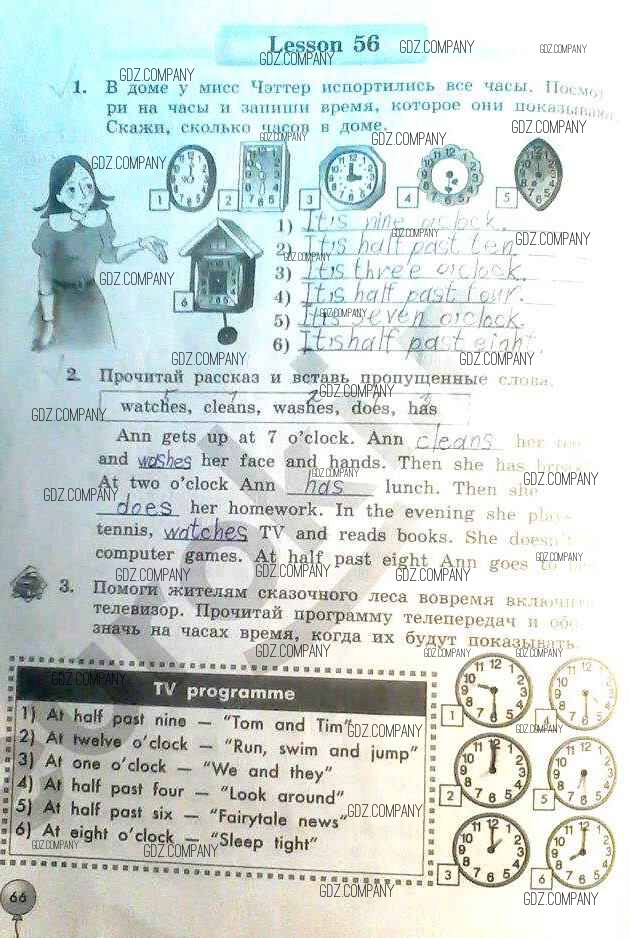 Lesson 56
1. В доме у мисс Чэттер испортились все часы. Посмот
ри на часы и запиши время, которое они показывают.
Скажи, сколько часов в доме.
1 2 3 4 5
1) It is nine o'clock.
2) It is half past ten
3) It is three o'clock.
4) It is half past four.
5) It is seven o'clock.
6
6) It is half past eight.
2. Прочитай рассказ и вставь пропущенные слова.
watches, cleans, washes, does, has
Ann gets up at 7 o'clock. Ann cleans her
and washes her face and hands. Then she has
At two o'clock Ann has lunch. Then she
does her homework. In the evening she
tennis, watches TV and reads books. She doesn't
computer games. At half past eight Ann goes to
3. Помоги жителям сказочного леса вовремя включить
телевизор. Прочитай программу телепередач и обо
значь на часах время, когда их будут показывать.
TV programme
1) At half past nine — "Tom and Tim"
2) At twelve o'clock — "Run, swim and jump"
3) At one o'clock — "We and they"
4) At half past four — "Look around"
5) At half past six — "Fairytale news"
6) At eight o'clock — "Sleep tight"
1 4
2 5
3 6
66
GDZ.COMPANY